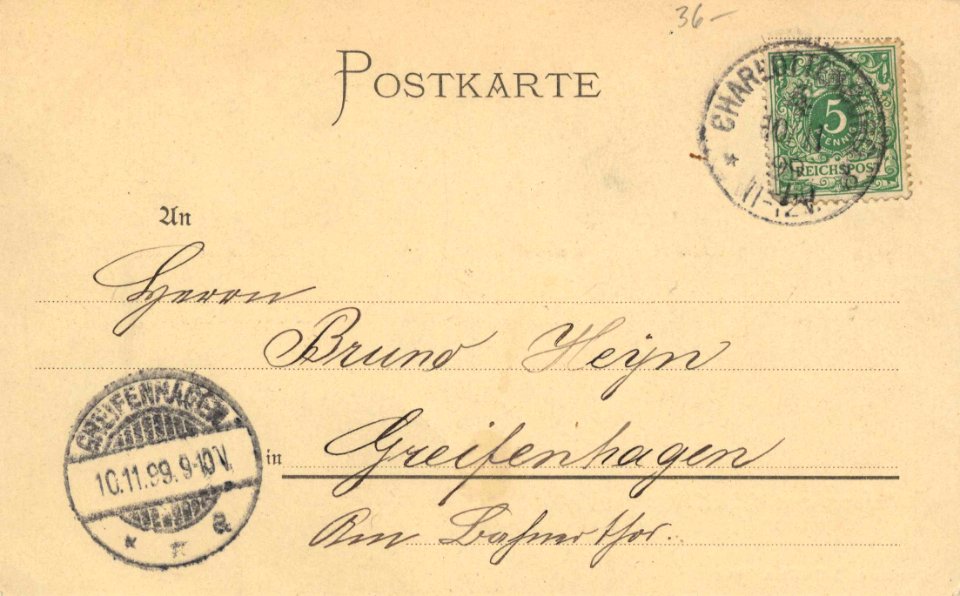 36-
POSTKARTE
CHARLOTTENBURG
5
PFENNIG
REICHSPOST
99
11-12V.
An
Herrn
Bruno Heyn
GREIFENHAGEN
10.11.99.9-10V.
* a
in Greifenhagen
Am Bahner thor.